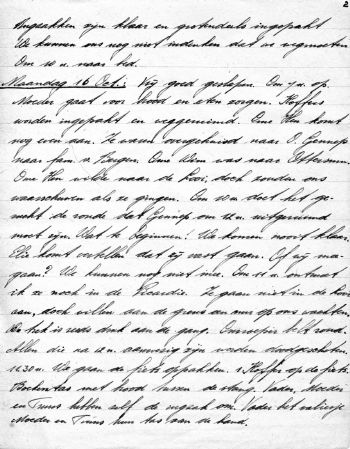 2
Rugzakken zijn klaar en grotendeels ingepakt
We kunnen ons nog niet indenken dat we wegmoeten
Om 10 u. naar bed.
Maandag 16 Oct.: Vrij goed geslapen. Om 7 u. op
Moeder gaat voor brood en eten zorgen. Koffers
worden ingepakt en weggeruimd. Ome Hen komt
nog even aan. Ze waren overgehuisd naar O. Gennep
naar fam. v. Bergen. Ome Wim was naar Ottersum.
Ome Hen wilde naar de Looi, doch zouden ons
waarschuwen als ze gingen. Om 10 u doet het ge-
rucht de ronde dat Gennep om 12 u. uitgeruimd
moet zijn. Wat te beginnen! We komen nooit klaar.
Elie komt vertellen dat zij vast gaan. Of wij mee-
gaan? We kunnen nog niet mee. Om 11 u ontmoet
ik ze nog in de Picardie. Ze gaan niet in de
aan, doch willen aan de grens an mur op ons wachten.
trek is reeds druk aan de gang. Omroeper belt rond.
Allen die na 12 u. aanwezig zijn worden doodgeschoten.
11.30 u. We gaan de fiets oppakken. 1 Koffer op de fiets.
Boekentas met brood tussen de stang. Vader, Moeder
en Truus hebben zelf de rugzak om. Vader het valiesje
Moeder en Truus hun tas aan de hand.